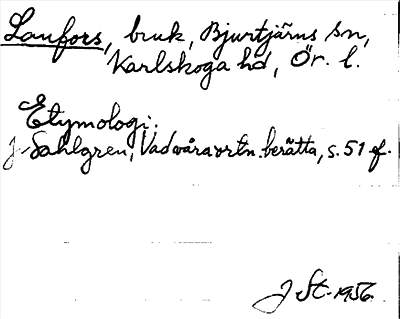 Lanfors, bruk, Bjurtjärns sn,
Karlskoga hd, Ör. l.
Etymologi:
J. Sahlgren, Vad våra ortn. berätta, s. 51 f.
J St. 1956